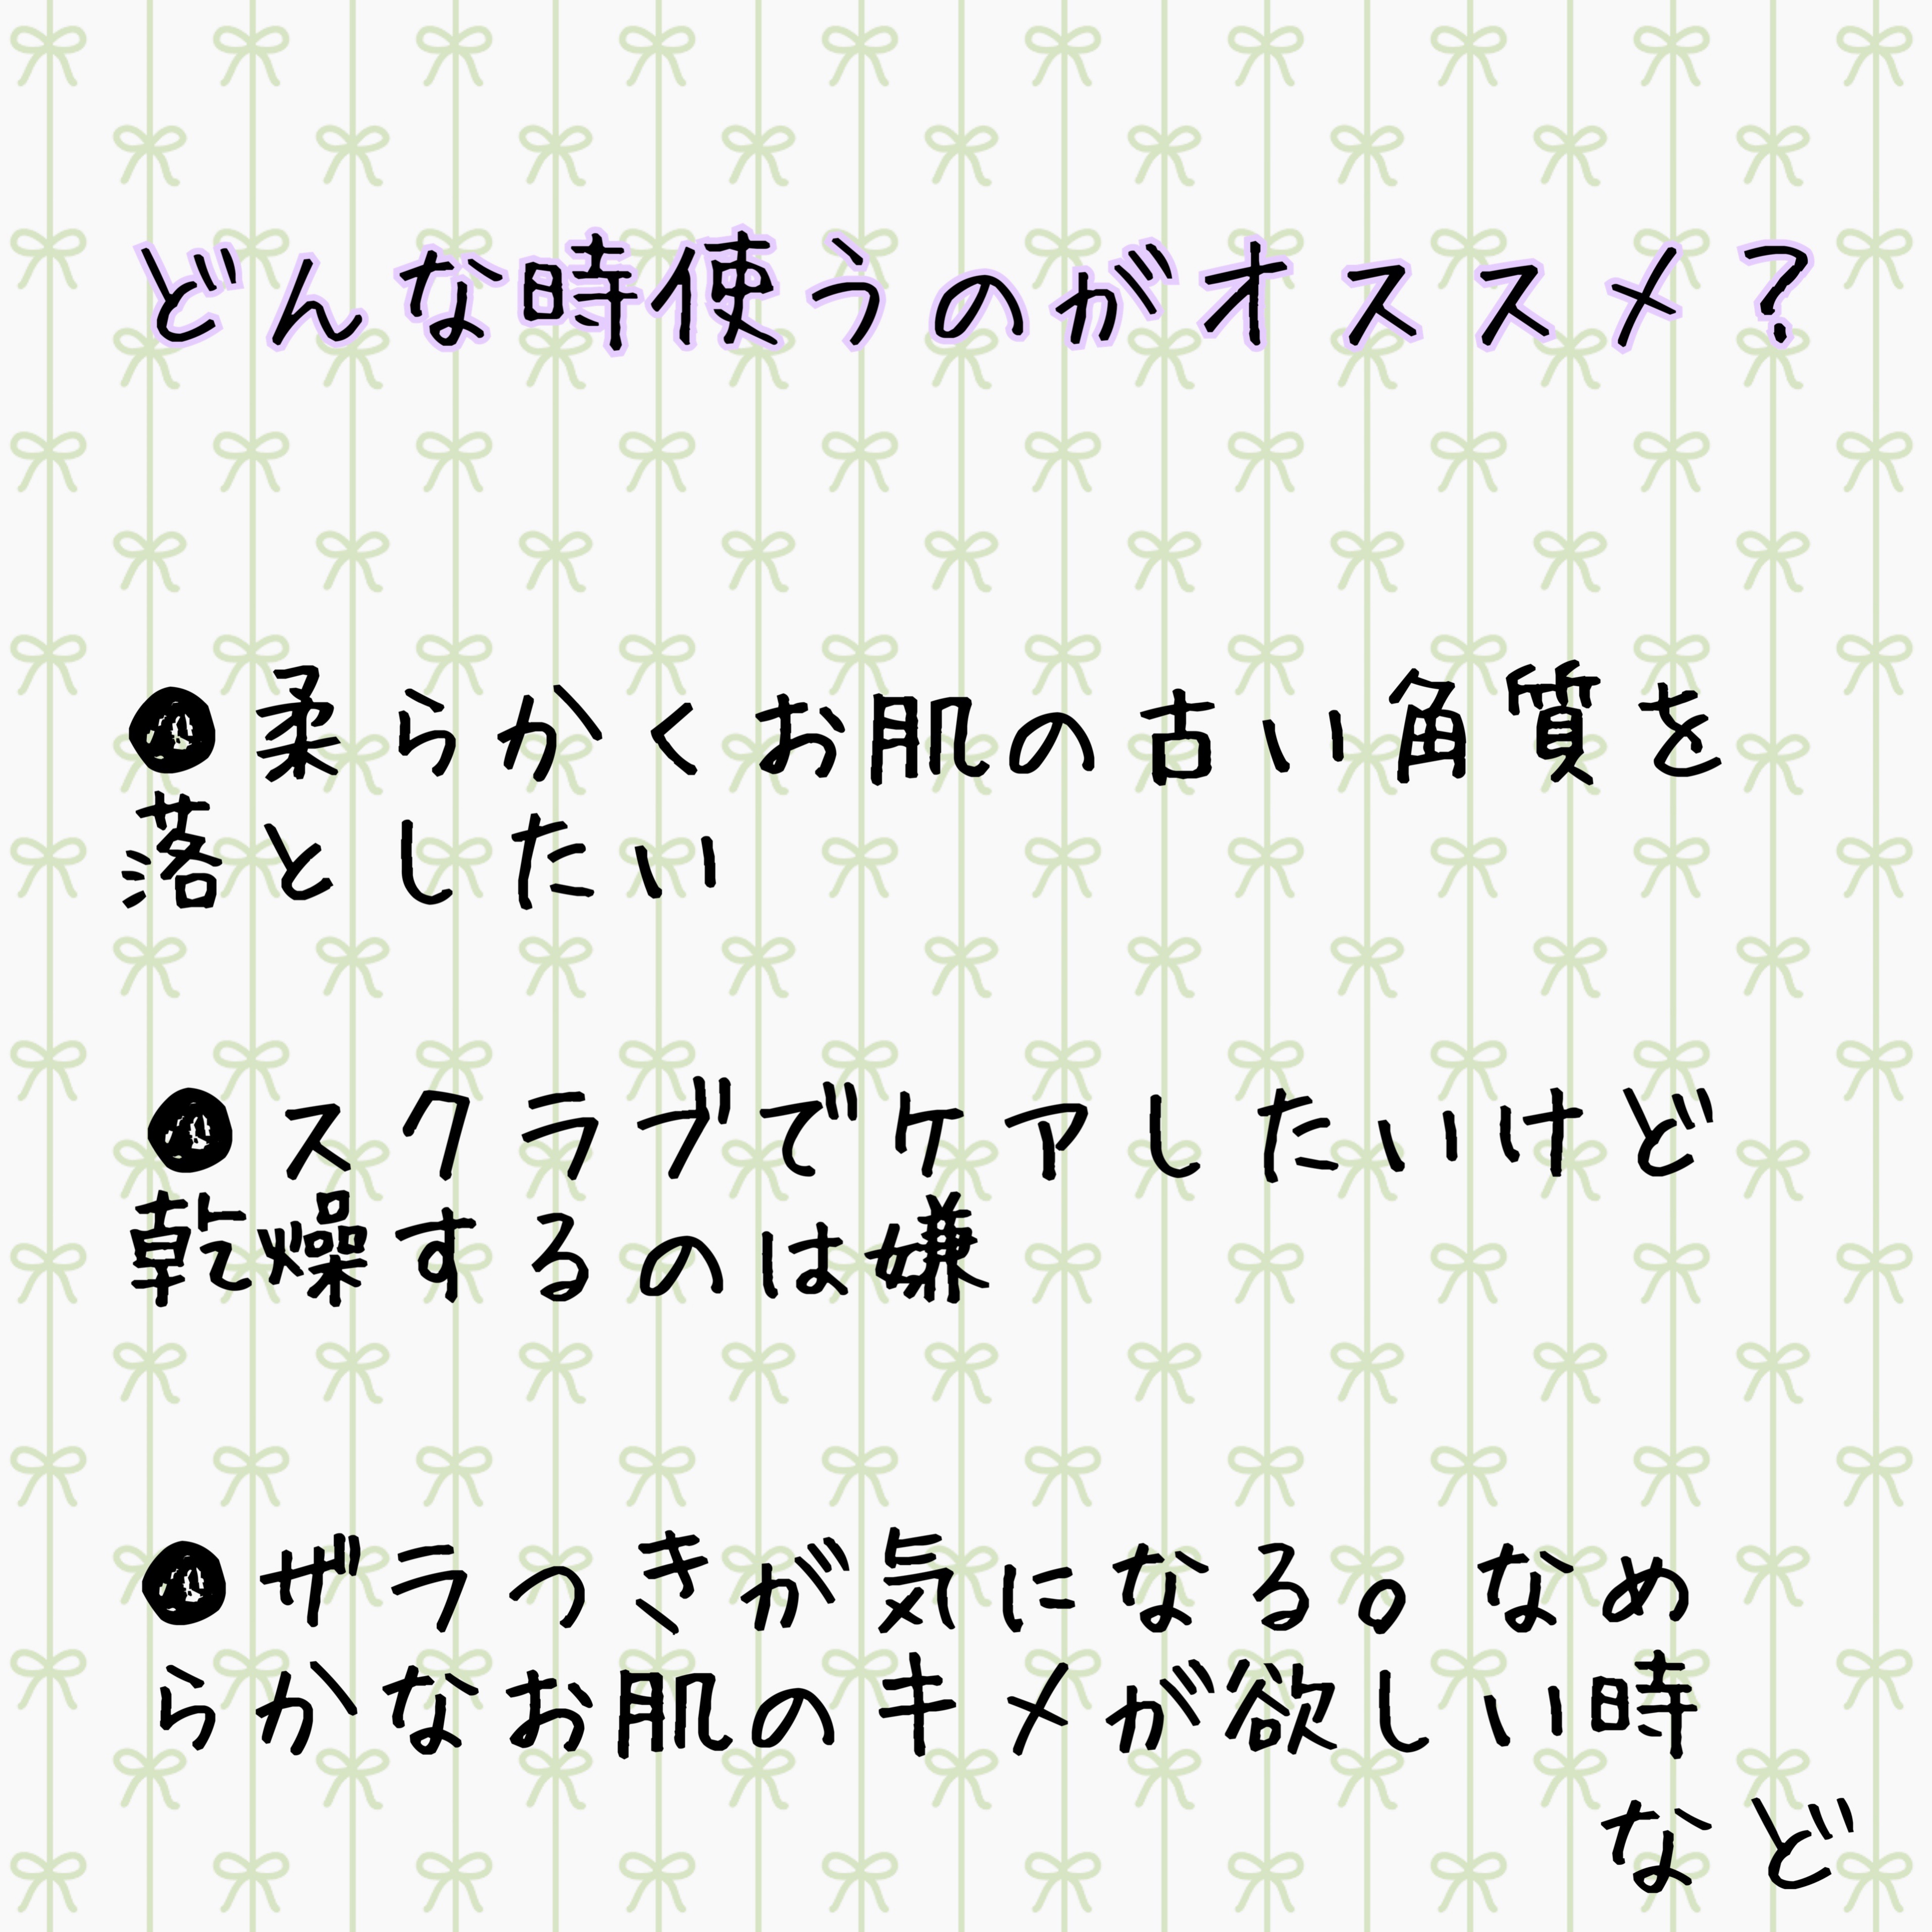 どんな時使うのがオススメ？
●柔らかくお肌の古い角質を
落としたい
●スクラブでケアしたいけど
乾燥するのは嫌
●ザラつきが気になる。なめ
らかなお肌のキメが欲しい時
など